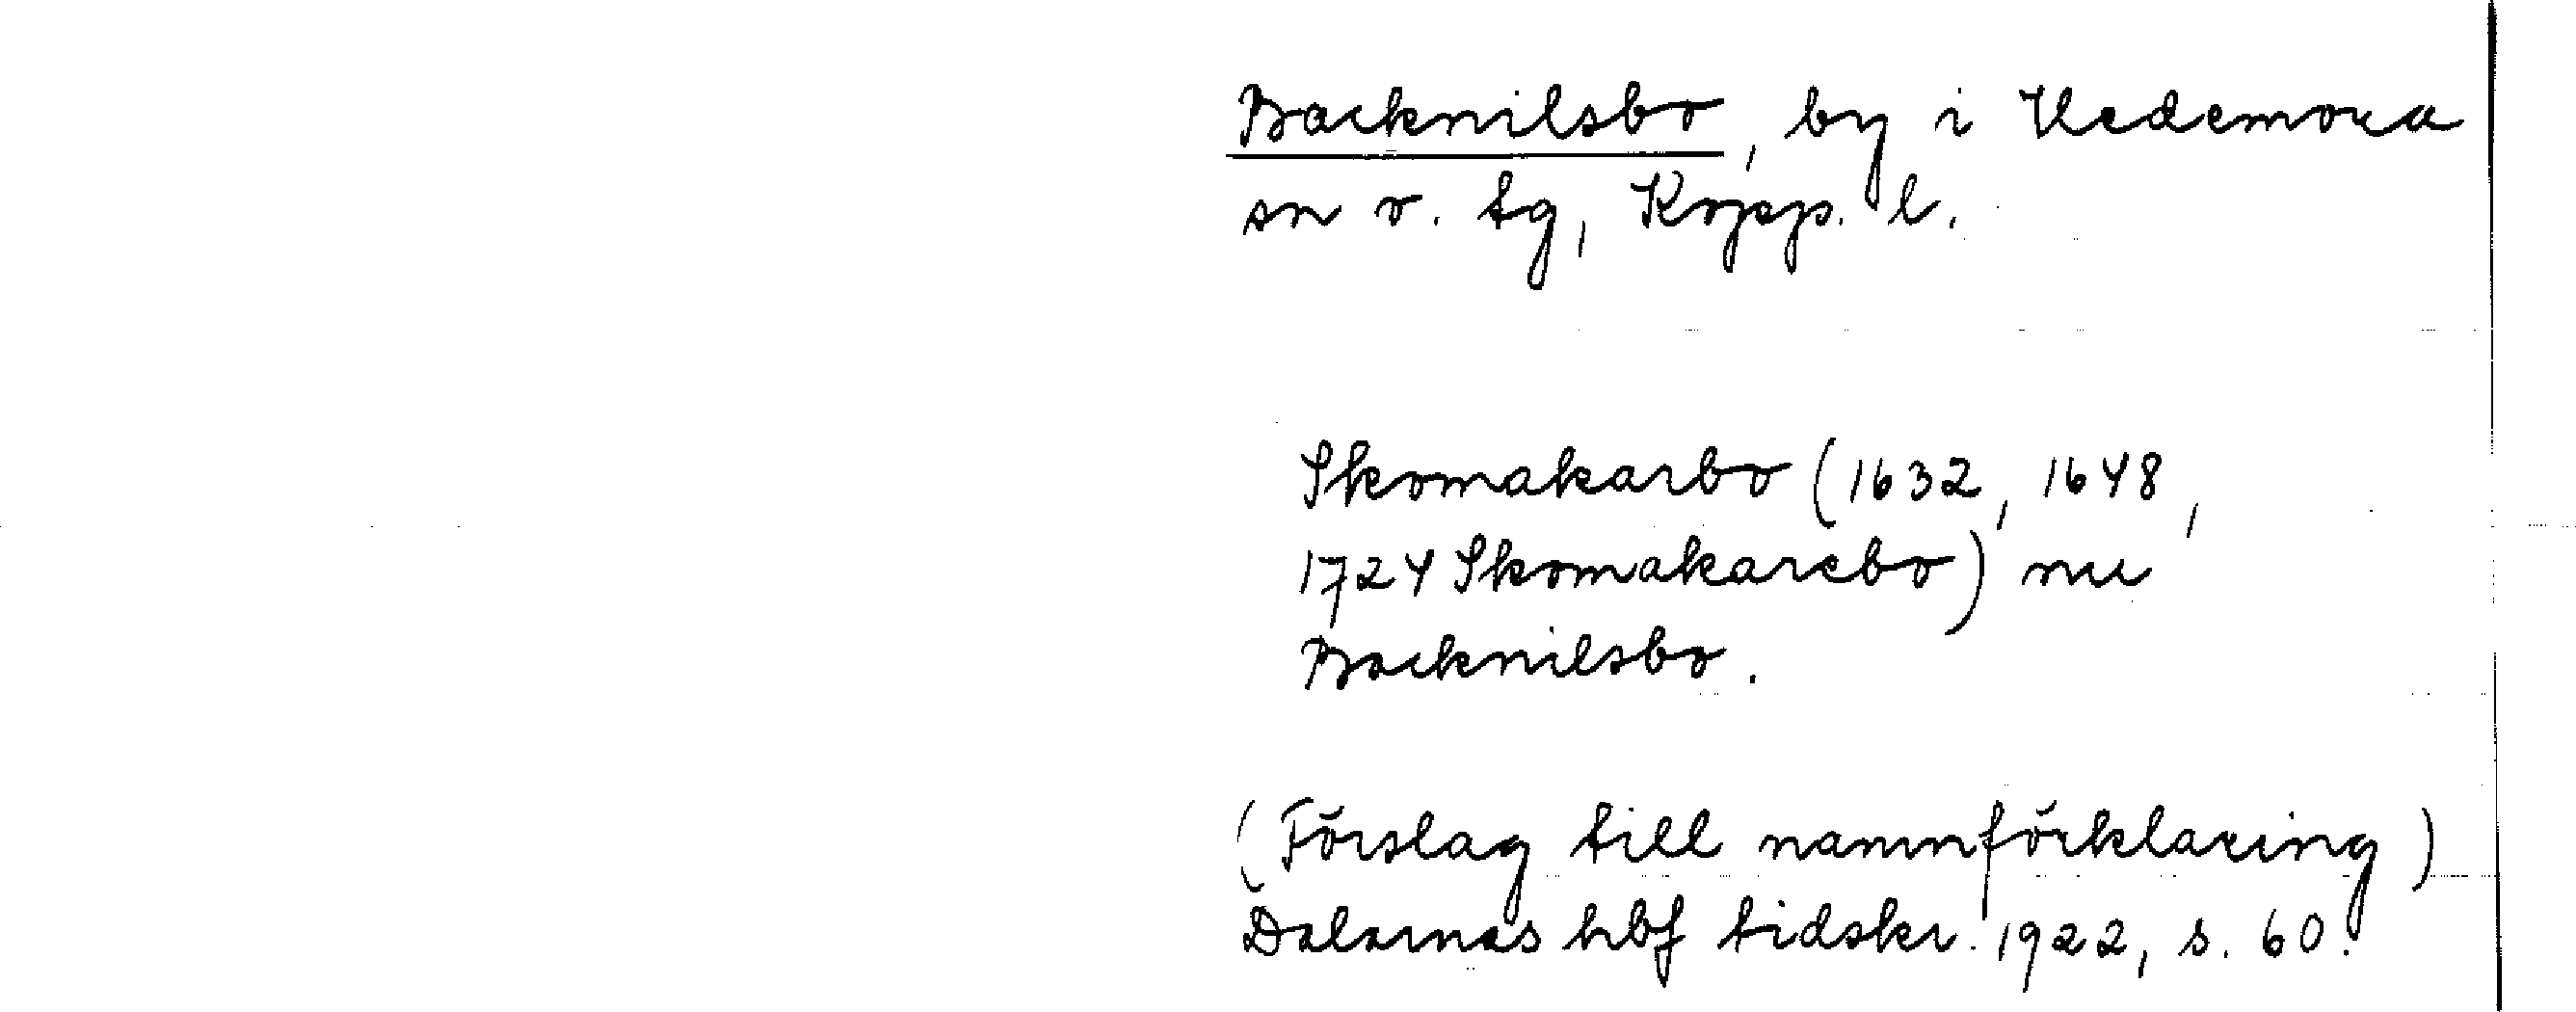 Backnilsbo, by i Hedemora
sn o. tg, Kopp. l.
Skomakarbo (1632, 1648,
1724 Skomakarebo) nu
Backnilsbo.
(Förslag till namnförklaring)
Dalarnas hbf tidskr. 1922, s. 60.